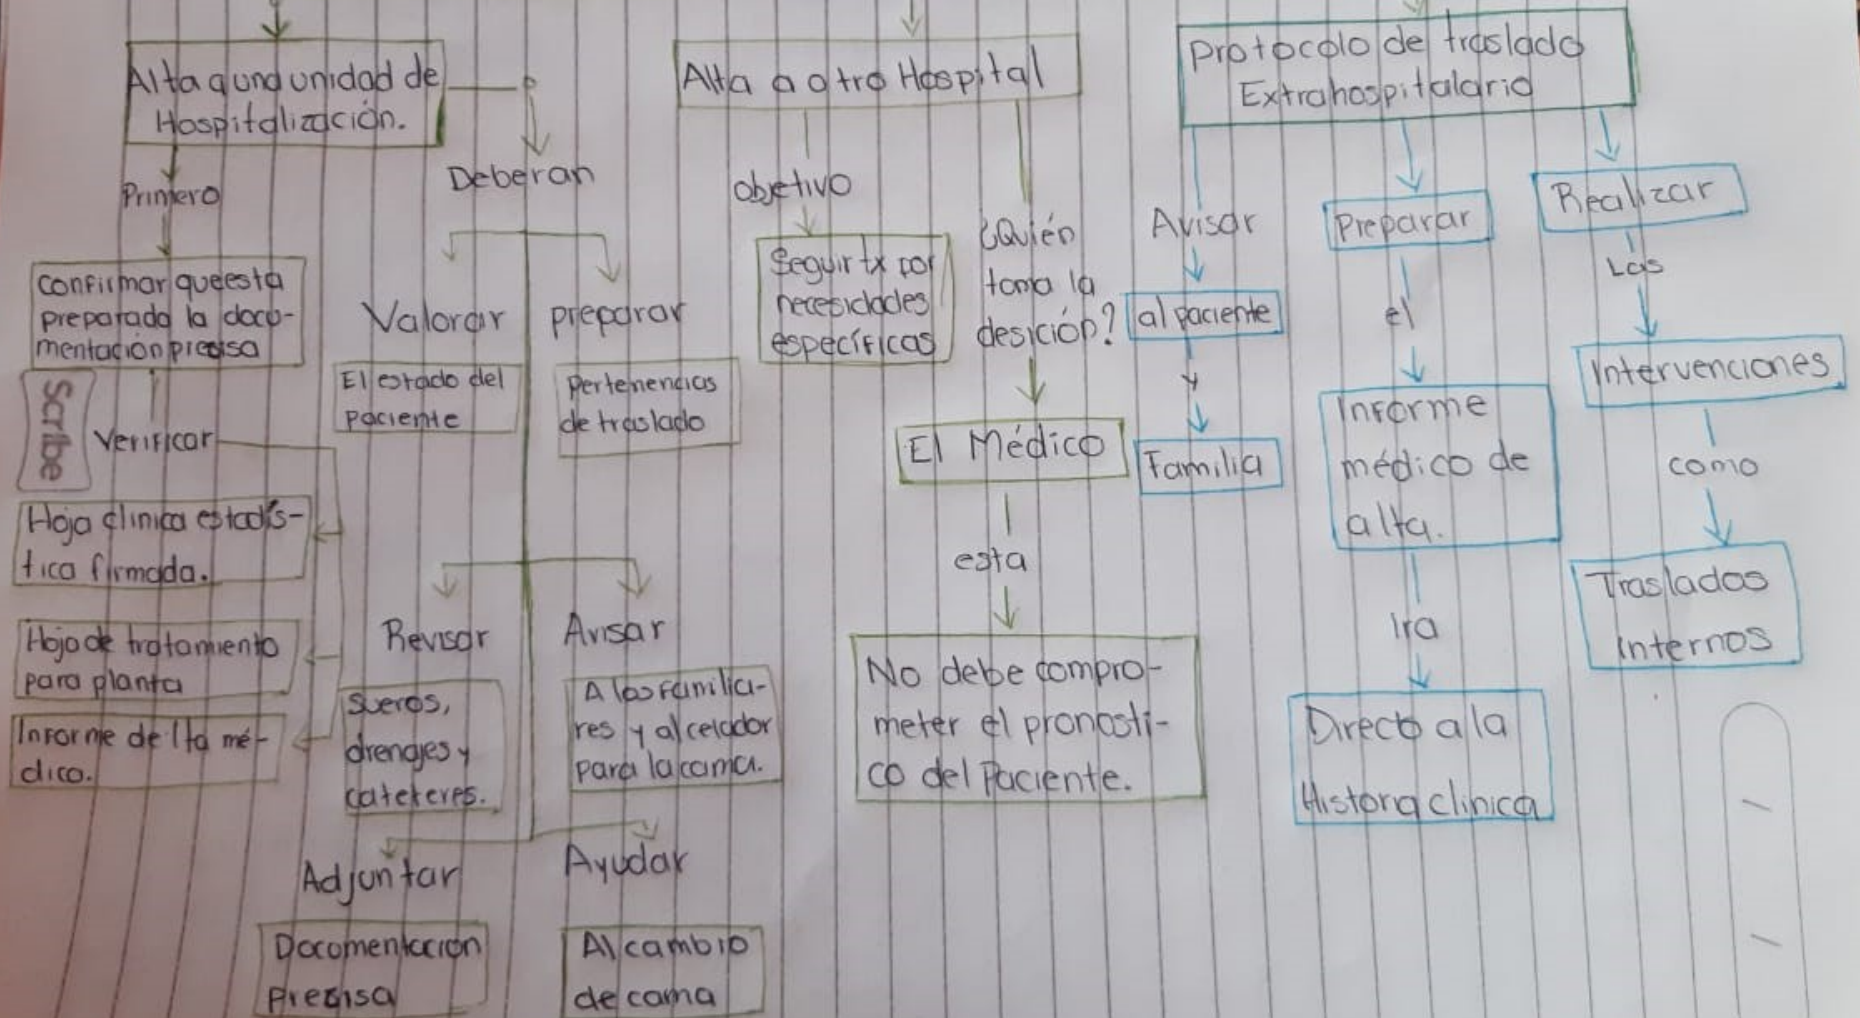 Alta a una unidad de
Hospitalización.
Primero
confirmar que esta
preparada la docu-
mentación precisa
Scribe
Verificar
Hoja clinica estadís-
tica firmada.
Hoja de tratamiento
para planta
Informe de lta mé-
dico.
Deberan
Valorar
El estado del
paciente
preparar
pertenencias
de traslado
Revisar
sueros,
drenajes y
cateteres.
Avisar
A los familia-
res y al celador
para la cama.
Adjuntar
Documentacion
precisa
Ayudar
Al cambio
de cama
Alta a otro Hospital
objetivo
Seguir tx por
necesidades
específicas
¿Quién
toma la
desición?
El Médico
esta
No debe compro-
meter el pronosti-
co del Paciente.
Protocolo de traslado
Extrahospitalario
Avisar
al paciente
y
Familia
Preparar
el
Informe
médico de
alta.
Ira
Directo a la
Historia clinica
Realizar
Las
Intervenciones
como
Traslados
Internos